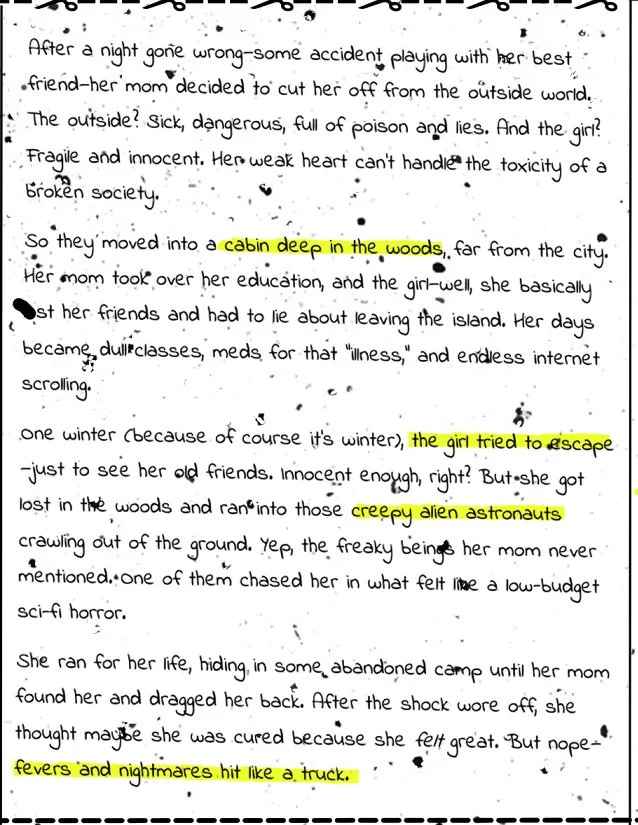 After a night gone wrong–some accident playing with her best
friend–her mom decided to cut her off from the outside world.
The outside? Sick, dangerous, full of poison and lies. And the girl?
Fragile and innocent. Her weak heart can't handle the toxicity of a
broken society.
So they moved into a cabin deep in the woods, far from the city.
Her mom took over her education, and the girl–well, she basically
st her friends and had to lie about leaving the island. Her days
became dull: classes, meds for that "illness," and endless internet
scrolling.
One winter (because of course it's winter), the girl tried to escape
–just to see her old friends. Innocent enough, right? But she got
lost in the woods and ran into those creepy alien astronauts
crawling out of the ground. Yep, the freaky beings her mom never
mentioned. One of them chased her in what felt like a low-budget
sci-fi horror.
She ran for her life, hiding in some abandoned camp until her mom
found her and dragged her back. After the shock wore off, she
thought maybe she was cured because she felt great. But nope–
fevers and nightmares hit like a truck.